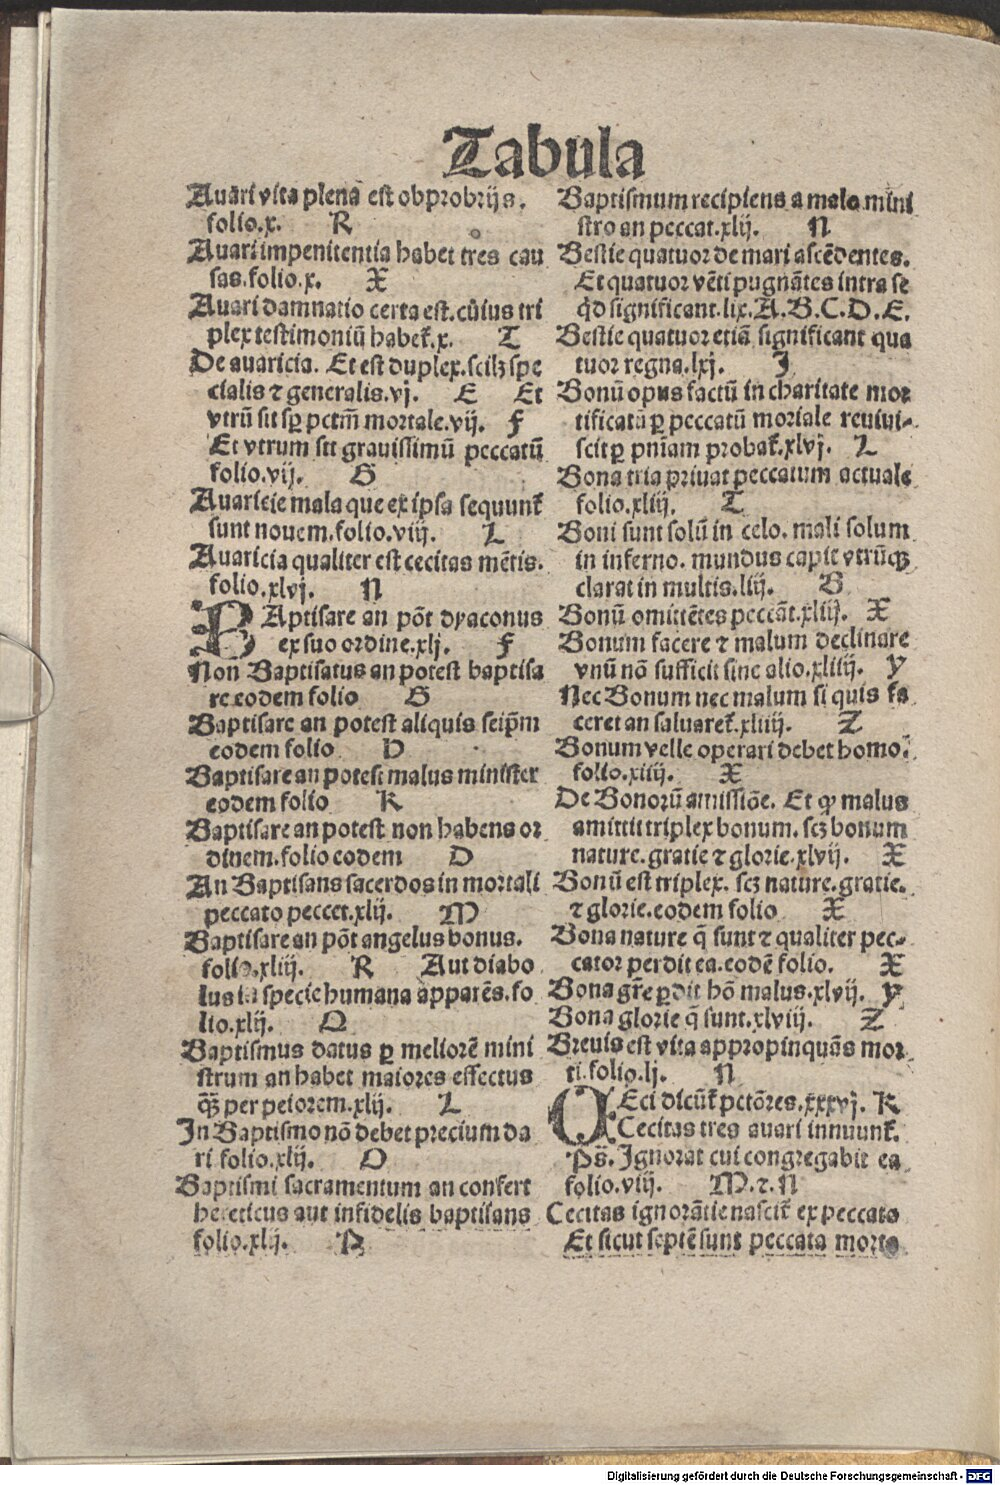 Tabula
Auari vita plena est obprobrijs.
folio.x. R
Auari impenitentia habet tres cau
sas.folio.x. X
Auari damnatio certa est.cuius tri
plex testimoniū habet̄.x. T
De auaricia. Et est duplex.scilꝫ spe
cialis ⁊ generalis.vj. E Et
vtrū sit sꝑ pctm̄ mortale.vij. F
Et vtrum sit grauissimū peccatū
folio.vij. G
Auaricie mala que ex ipsa sequunt̄
sunt nouem.folio.viij. L
Auaricia qualiter est cecitas mētis.
folio.xlvj. N
BAptisare an pōt dyaconus
ex suo ordine.xlj. F
Non Baptisatus an potest baptisa
re eodem folio G
Baptisare an potest aliquis seip̄m
eodem folio H
Baptisare an potest malus minister
eodem folio K
Baptisare an potest non habens or
dinem.folio eodem D
An Baptisans sacerdos in mortali
peccato peccet.xlij. M
Baptisare an pōt angelus bonus.
folio.xliij. R Aut diabo
lus in specie humana apparēs.fo
lio.xlij. Q
Baptismus datus ꝑ meliorē mini
strum an habet maiores effectus
qȝ̄ per peiorem.xlij. L
In Baptismo nō debet precium da
ri folio.xlij. O
Baptismi sacramentum an confert
hereticus aut infidelis baptisans
folio.xlij. P
Baptismum recipiens a malo mini
stro an peccat.xlij. N
Bestie quatuor de mari ascēdentes.
Et quatuor vēti pugnātes intra se
qd̄ significant.lix.A.B.C.D.E.
Bestie quatuor etiā significant qua
tuor regna.lxj. I
Bonū opus factū in charitate mor
tificatā ꝑ peccatū mortale reuiui-
scit ꝑ pn̄iam probat̄.xlvj. L
Bona tria priuat peccatum actuale
folio.xliij. T
Boni sunt solū in celo. mali solum
in inferno. mundus capit vtrūqȝ
clarat in multis.liij. B
Bonū omittētes peccāt.xliij. X
Bonum facere ⁊ malum declinare
vnū nō sufficit sine alio.xliiij. Y
Nec Bonum nec malum si quis fa
ceret an saluaret̄.xliiij. Z
Bonum velle operari debet homo.
folio.xiiij. X
De Bonorū amissiōe. Et qꝙ malus
amittit triplex bonum. scꝫ bonum
nature.gratie ⁊ glorie.xlvij. X
Bonū est triplex. scꝫ nature.gratie.
⁊ glorie.eodem folio X
Bona nature q̄ sunt ⁊ qualiter pec-
cator perdit ea.eodē folio. X
Bona gr̄e ꝑdit hō malus.xlvij. Y
Bona glorie q̄ sunt.xlviij. Z
Breuis est vita appropinquās mor
ti.folio.lj. N
CEci dicūt̄ pctōres.xxxvj. K
Cecitas tres auari innuunt̄.
Ps̄. Ignorat cui congregabit ea
folio.viij. M.⁊.N
Cecitas ignorātie nascit̄ ex peccato
Et sicut septē sunt peccata morta
Digitalisierung gefördert durch die Deutsche Forschungsgemeinschaft - DFG